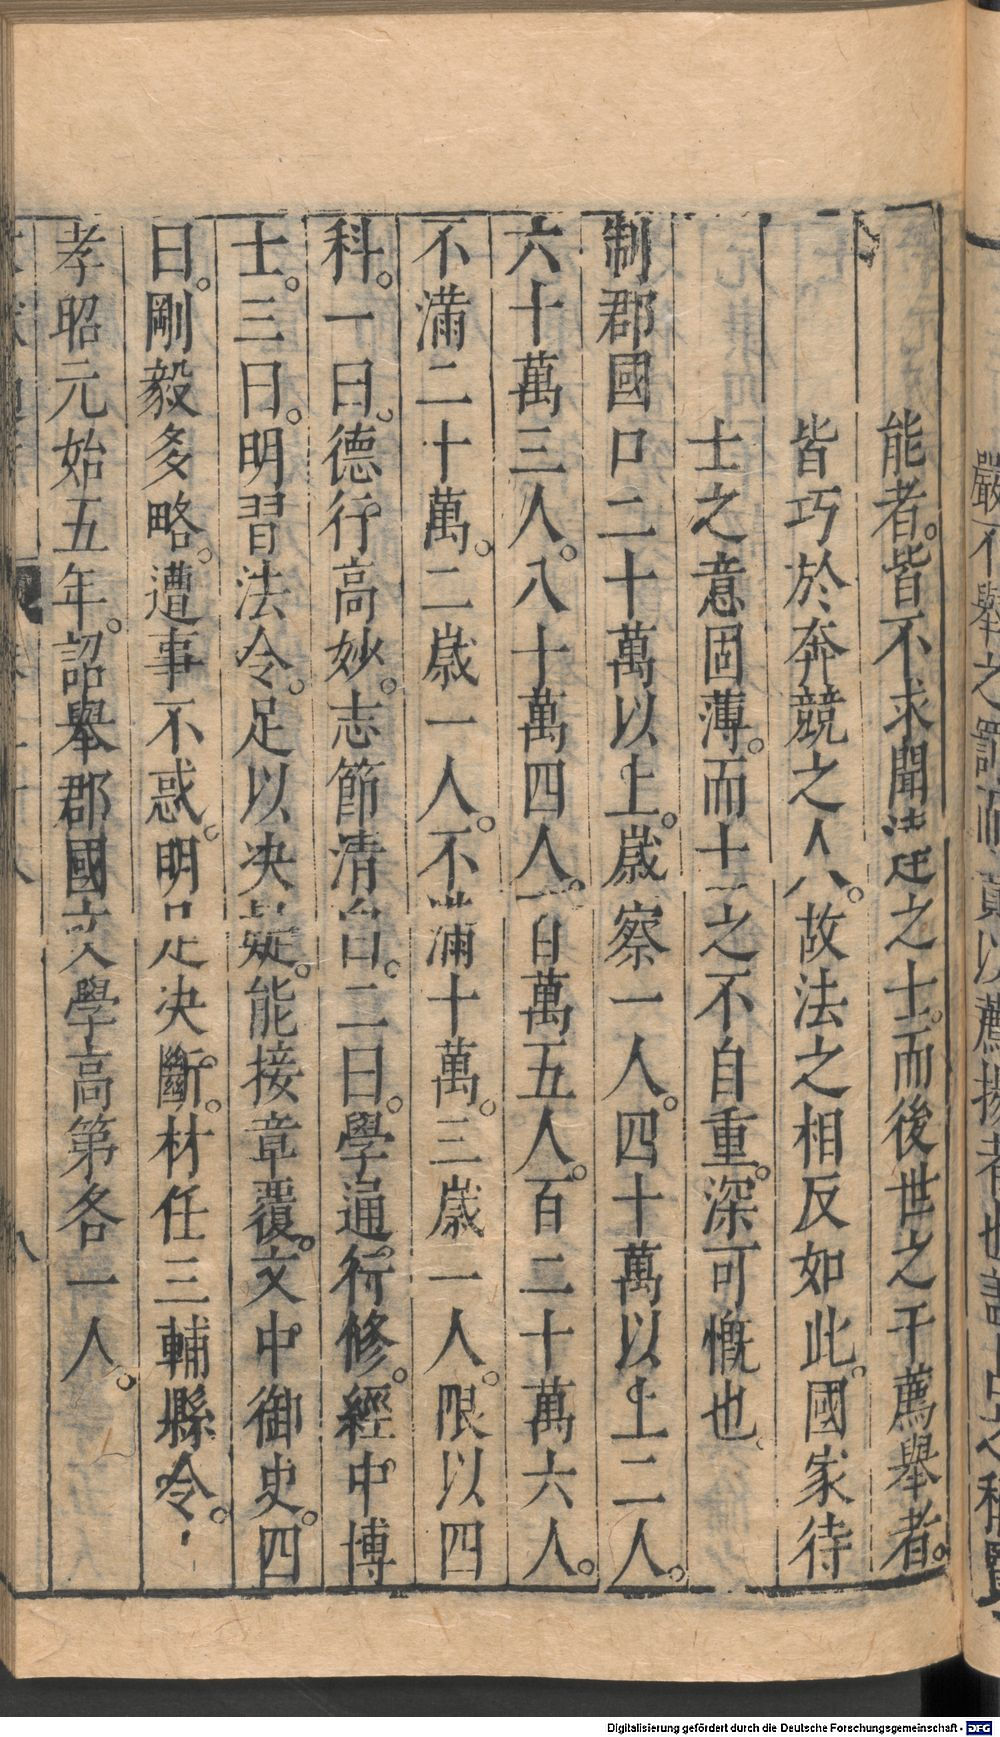 能者。皆不求聞達之士。而後世之干薦舉者。
皆巧於奔競之人。故法之相反如此。國家待
士之意固薄。而士之不自重。深可慨也。
制郡國口二十萬以上。歲察一人。四十萬以上二人。
六十萬三人。八十萬四人。百萬五人。百二十萬六人。
不滿二十萬。二歲一人。不滿十萬。三歲一人。限以四
科。一曰。德行高妙。志節清白。二曰。學通行修。經中博
士。三曰。明習法令。足以决疑。能接章覆。文中御史。四
曰。剛毅多略。遭事不惑。明足决斷。材任三輔縣令。
孝昭元始五年。詔舉郡國文學高第各一人。
八
Digitalisierung gefördert durch die Deutsche Forschungsgemeinschaft - DFG